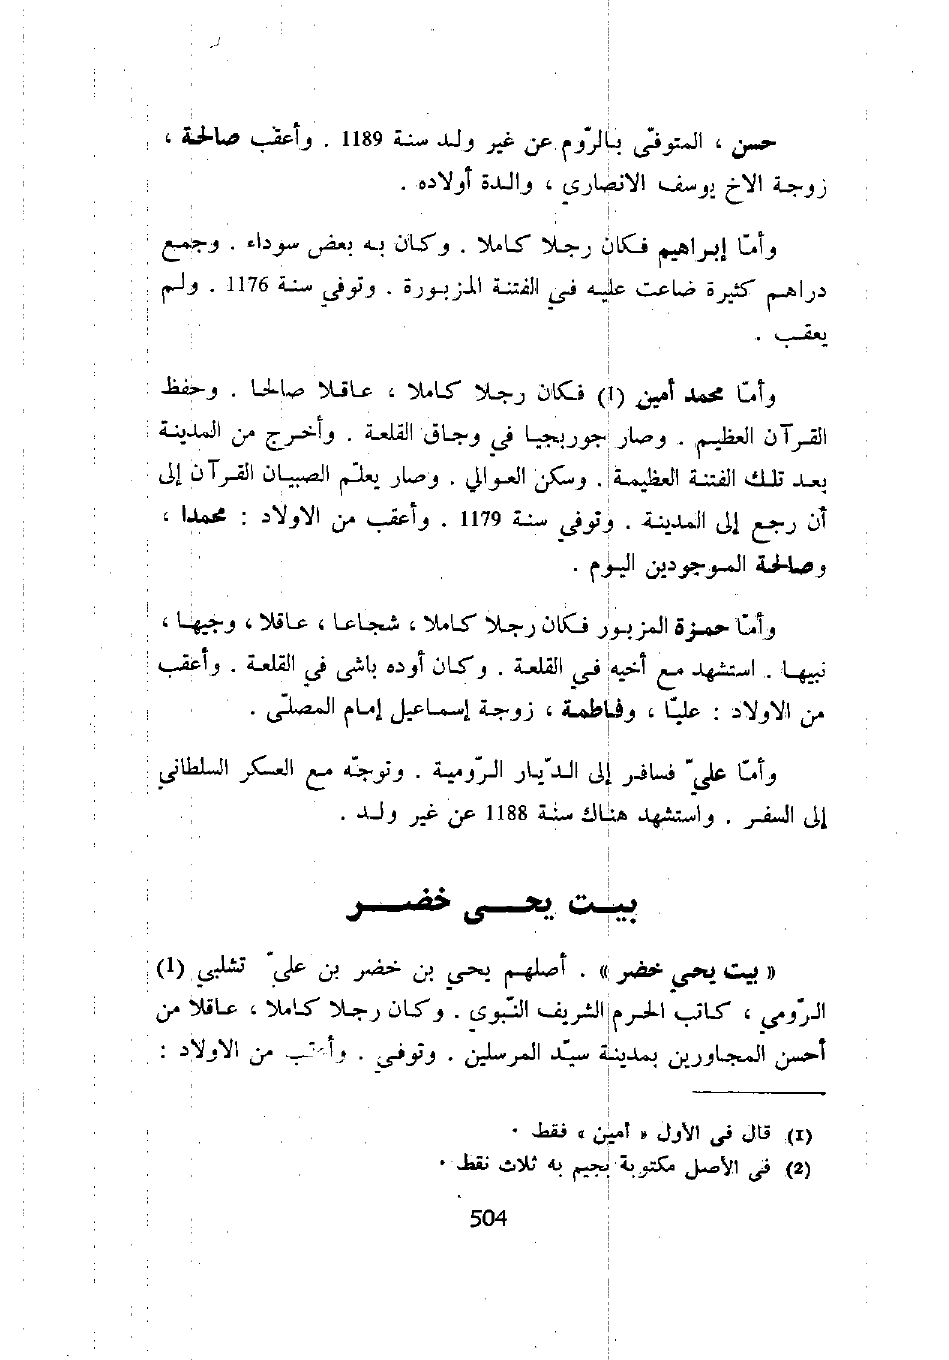 حسن ، المتوفّى بالرّوم عن غير ولد سنة 1189 . وأعقب صالحة ،
زوجة الاخ يوسف الانصاري ، والدة أولاده .
وأمّا إبراهيم فكان رجلا كاملا . وكان به بعض سوداء . وجمع
دراهم كثيرة ضاعت عليه في الفتنة المزبورة . وتوفي سنة 1176 . ولم
يعقب .
وأمّا محمد أمين (1) فكان رجلا كاملا ، عاقلا صالحا . وحفظ
القرآن العظيم . وصار جوربجيا في وجاق القلعة . وأخرج من المدينة
بعد تلك الفتنة العظيمة . وسكن العوالي . وصار يعلّم الصبيان القرآن إلى
أن رجع إلى المدينة . وتوفي سنة 1179 . وأعقب من الاولاد : محمدا ،
وصالحة الموجودين اليوم .
وأمّا حمزة المزبور فكان رجلا كاملا ، شجاعا ، عاقلا ، وجيها ،
نبيها . استشهد مع أخيه في القلعة . وكان أوده باشى في القلعة . وأعقب
من الاولاد : عليّا ، وفاطمة ، زوجة إسماعيل إمام المصلّى .
وأمّا عليّ فسافر إلى الدّيار الرّومية . وتوجّه مع العسكر السلطاني
إلى السفر . واستشهد هناك سنة 1188 عن غير ولد .
بيت يحى خضر
« بيت يحي خضر » . أصلهم يحي بن خضر بن عليّ تشلبي (1)
الرّومي ، كاتب الحرم الشريف النّبوي . وكان رجلا كاملا ، عاقلا من
أحسن المجاورين بمدينة سيّد المرسلين . وتوفي . وأعقب من الاولاد :
(1) قال في الأول « أمين » فقط .
(2) في الأصل مكتوبة بجيم به ثلاث نقط .
504